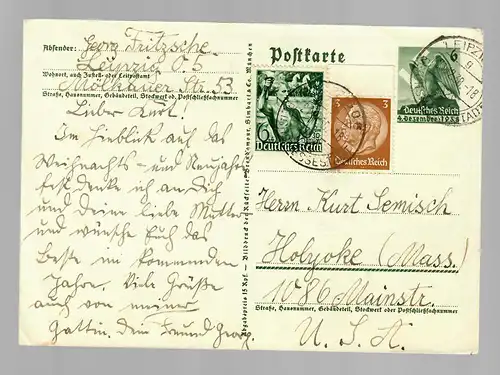 Absender: Georg Fritzsche
Leipzig O 5
Wohnort, auch Zustell- oder Leitpostamt
Straße, Hausnummer, Gebäudeteil, Stockwerk od. Postschließfachnummer
Lieber Kurt!
Im Hinblick auf das
Weihnachts- und Neujahrs-
fest denke ich an Dich
und Deine liebe Mutter
und wünsche Euch das
Beste im kommenden
Jahre. Viele Grüße
auch von meiner
Gattin. Dein Freund Georg.
Postkarte
6
LEIPZIG
Deutsches Reich
4. Dezember 1938
6
Deutsches Reich
3
3
Deutsches Reich
Herrn Kurt Semisch
Holyoke (Mass.)
1086 Mainstr.
Straße, Hausnummer, Gebäudeteil, Stockwerk oder Postschließfachnummer
U. S. A.
Abgabepreis 15 Rpf.